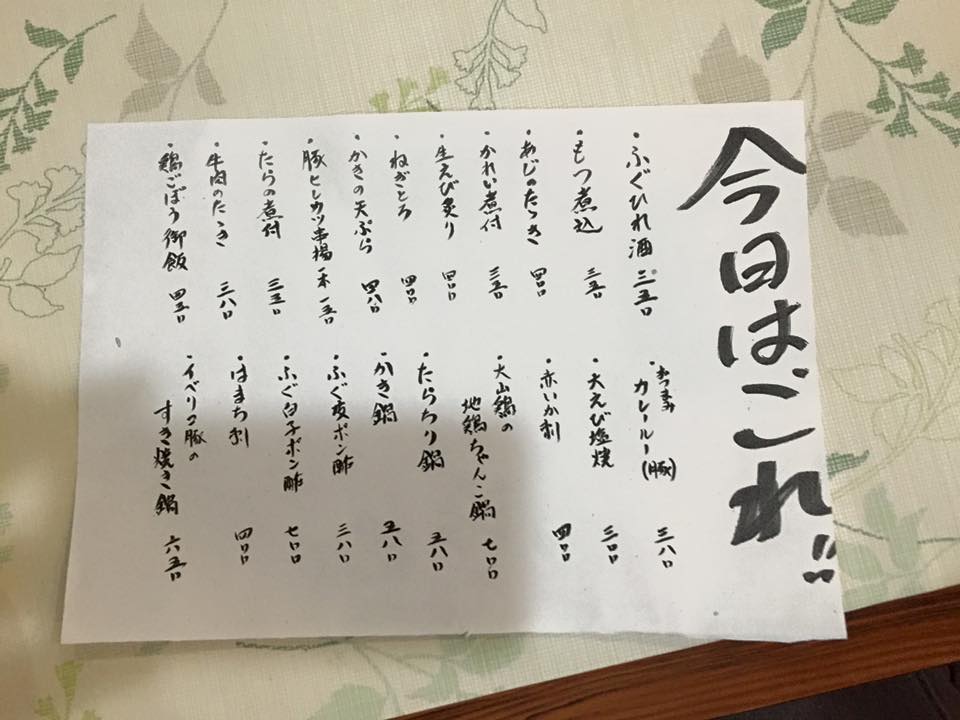 今日はこれ!!
・ふぐひれ酒 三五〇
・もつ煮込 三五〇
・あじのたゝき 四〇〇
・かれい煮付 三五〇
・生えび炙り 四〇〇
・ねぎとろ 四〇〇
・かきの天ぷら 四八〇
・豚ヒレカツ串揚 一本 一五〇
・たらの煮付 三五〇
・牛肉のたゝき 三八〇
・鶏ごぼう御飯 四五〇
・おつまみカレールー(豚) 三八〇
・大えび塩焼 三〇〇
・赤いか刺 四〇〇
・大山鶏の
地鶏ちゃんこ鍋 七〇〇
・たらちり鍋 五八〇
・かき鍋 五八〇
・ふぐ皮ポン酢 三八〇
・ふぐ白子ポン酢 七〇〇
・はまち刺 四〇〇
・イベリコ豚の
すき焼き鍋 六五〇